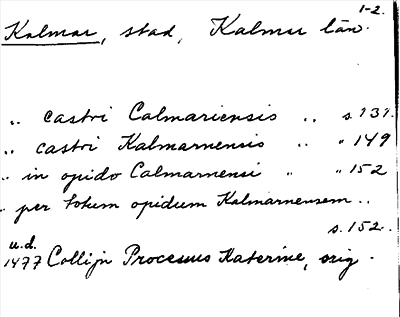 1-2.
Kalmar, stad, Kalmar län.
„ castri Calmariensis „ s. 131.
„ castri Kalmarnensis „ " 149
„ in opido Calmarnensi „ " 152
„ per totum opidum Kalmarnensem „
s. 152.
u.d.
1477 Collijn Processus Katerine, orig.